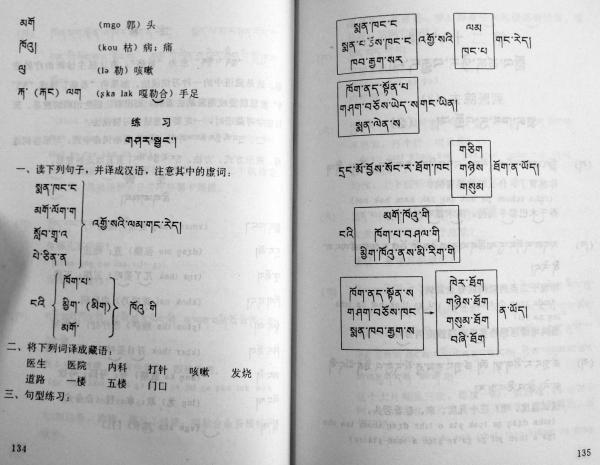 མགོ (mgo 郭)头
ཁོའུ། (kou 枯)病;痛
ལུ (lə 勒)咳嗽
རྐ་ (རྐང་) ལག (ʂka lak 嘎勒合)手足
练 习
གཤར་སྦྱང་།
一、读下列句子,并译成汉语,注意其中的虚词:
སྨན་ཁང་ང
མགོ་ལོག་ག
སློབ་གྲྭ་འ
པེ་ཅིན་ན
འགྱོ་སའི་ལམ་གང་རེད།
ངའི
ཁོག་པ་
མིག་ (མིག)
མགོ་
ཁོའུ་ གི
二、将下列词译成藏语:
医生 医院 内科 打针 咳嗽 发烧
道路 一楼 五楼 门口
三、句型练习:
134
སྨན་ཁང་ང
ཁབ་རྒྱག་སར
འགྱོ་སའི
ལམ
ཁང་པ་
གང་རེད།
ཁོག་ནད་སྟོན་པ
གཤག་བཅོས་ཡེད་ས
སྨན་ལེན་ས
གང་ཡིན།
དྲང་མོ་བྱོས་སོང་ར་ཐོག་ཁང
གཅིག
གཉིས
གསུམ
ཐོག་ན་ཡོད།
ངའི
མགོ་ཁོའུ་གི
ཁོག་པ་བཤལ་གི
མྱིག་ཁོའུ་ནས་མི་རིག་གི
ཁོག་ནད་སྟོན་ས
གཤག་བཅོས་ཁང
སྨན་ཁབ་རྒྱག་ས
ཁེར་ཐོག
གཉིས་ཐོག
གསུམ་ཐོག
བཞི་ཐོག
ན་ཡོད།
135